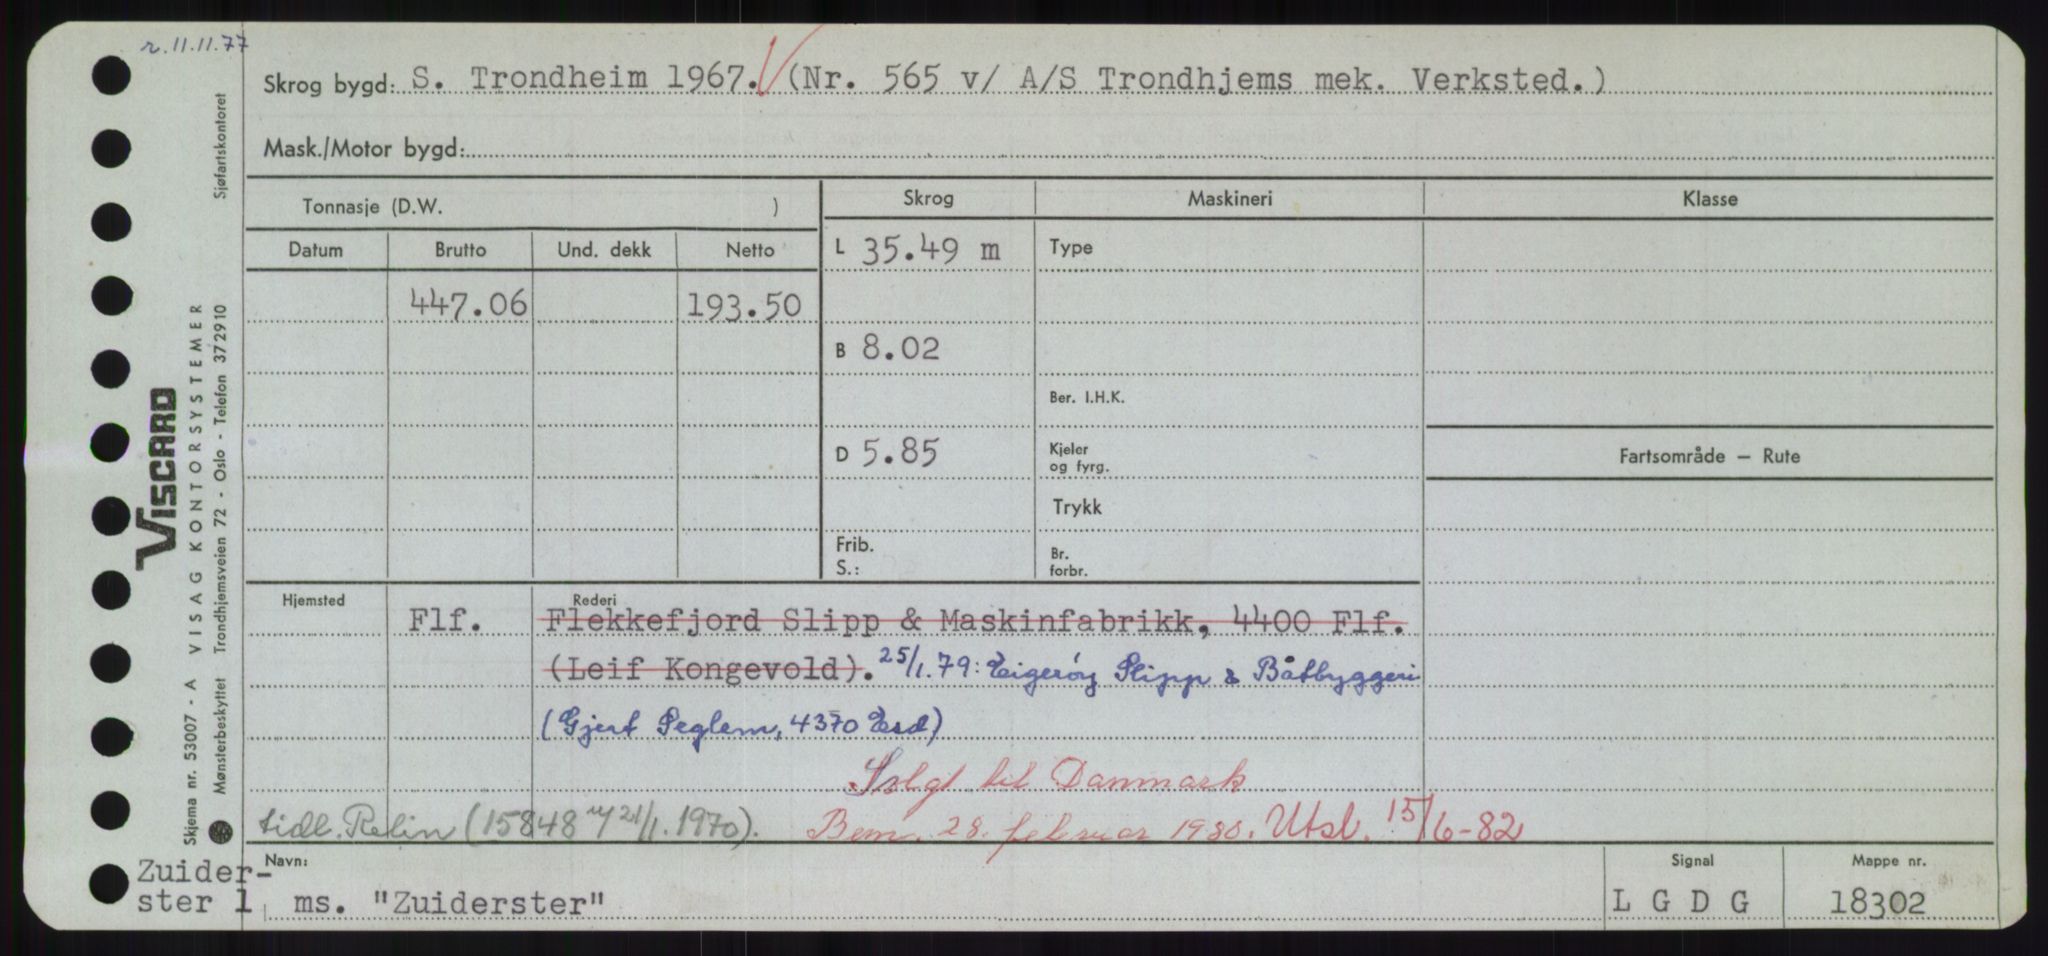 r. 11.11.77
Skrog bygd: S. Trondheim 1967. (Nr. 565 v/ A/S Trondhjems mek. Verksted.)
Mask./Motor bygd:
Tonnasje (D.W. )
Skrog
Maskineri
Klasse
Datum
Brutto
Und. dekk
Netto
L 35.49 m
Type
447.06
193.50
B 8.02
Ber. I.H.K.
D 5.85
Kjeler
og fyrg.
Fartsområde – Rute
Trykk
Frib.
S.:
Br.
forbr.
Hjemsted
Rederi
Flf.
Flekkefjord Slipp & Maskinfabrikk, 4400 Flf.
(Leif Kongevold). 25/1.79: Eigerøy Slipp & Båtbyggeri
(Gjert Seglem, 4370 Esd)
Solgt til Danmark
tidl. Relin (15848 21/1.1970).
Bem. 28. februar 1980. Utsl. 15/6-82
Navn:
Signal
Mappe nr.
Zuider-
ster 1
ms. "Zuiderster"
L G D G
18302
Skjema nr. 53007 - A VISAG KONTORSYSTEMER
Mønsterbeskyttet Trondhjemsveien 72 - Oslo - Telefon 372910
Sjøfartskontoret
VISCARD